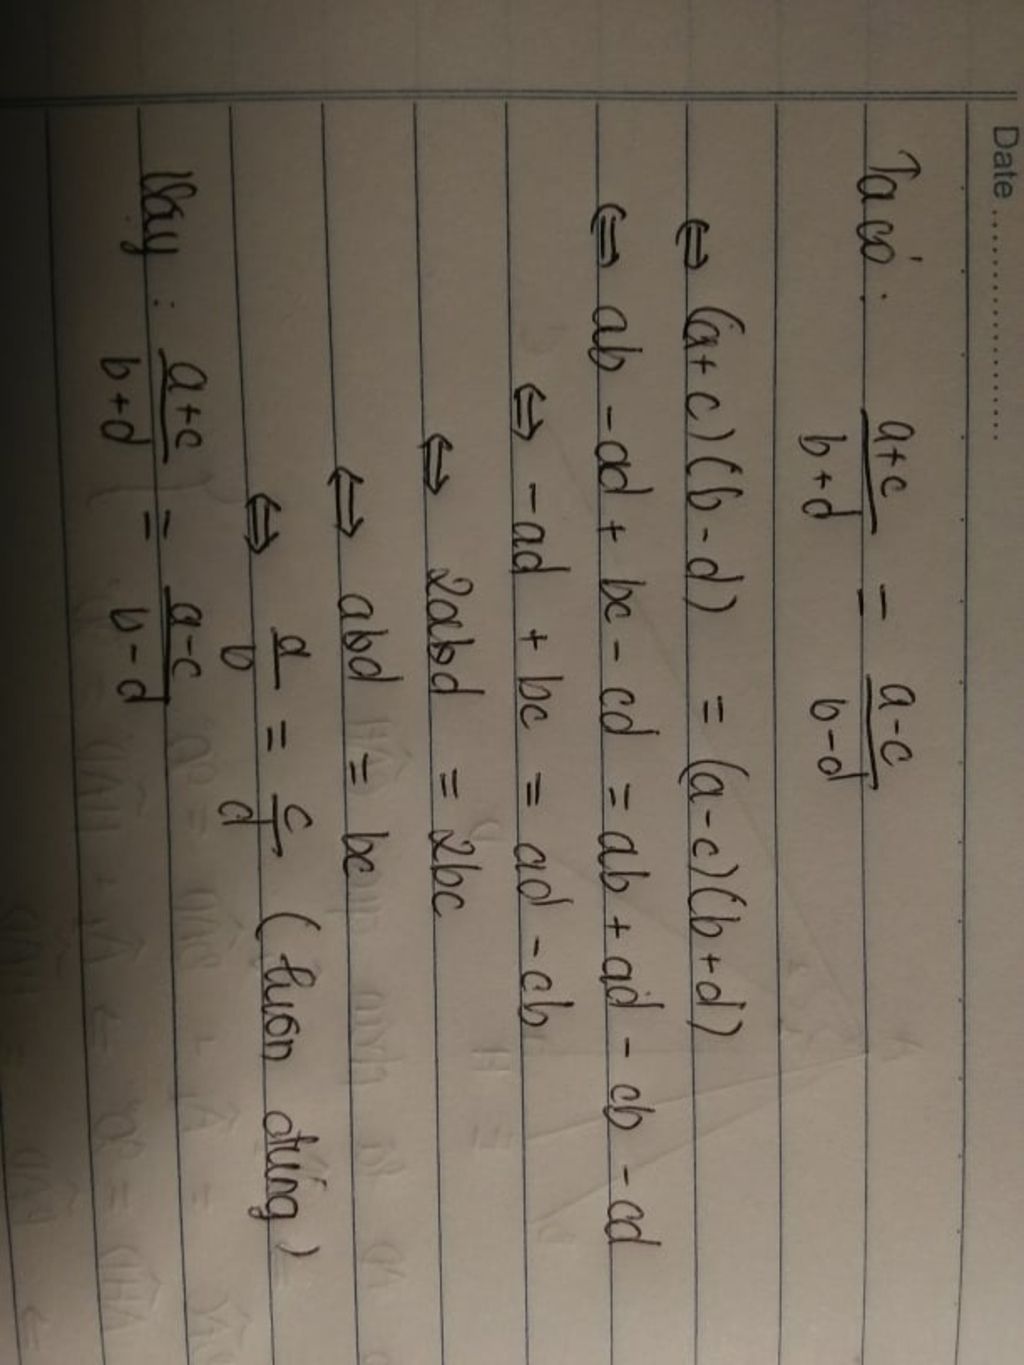 Date ....................
Ta có: a+c/b+d = a-c/b-d
⇔ (a+c)(b-d) = (a-c)(b+d)
⇔ ab - ad + bc - cd = ab + ad - cb - cd
⇔ -ad + bc = ad - cb
⇔ 2abd = 2bc
⇔ abd = bc
⇔ a/b = c/d (luôn đúng)
Vay: a+c/b+d = a-c/b-d